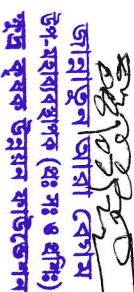 জান্নাতুল তারা বেগম
উপ-মহাব্যবস্থাপক (প্রঃ সঃ ও প্রশিঃ)
ক্ষুদ্র কৃষক উন্নয়ন ফাউন্ডেশন